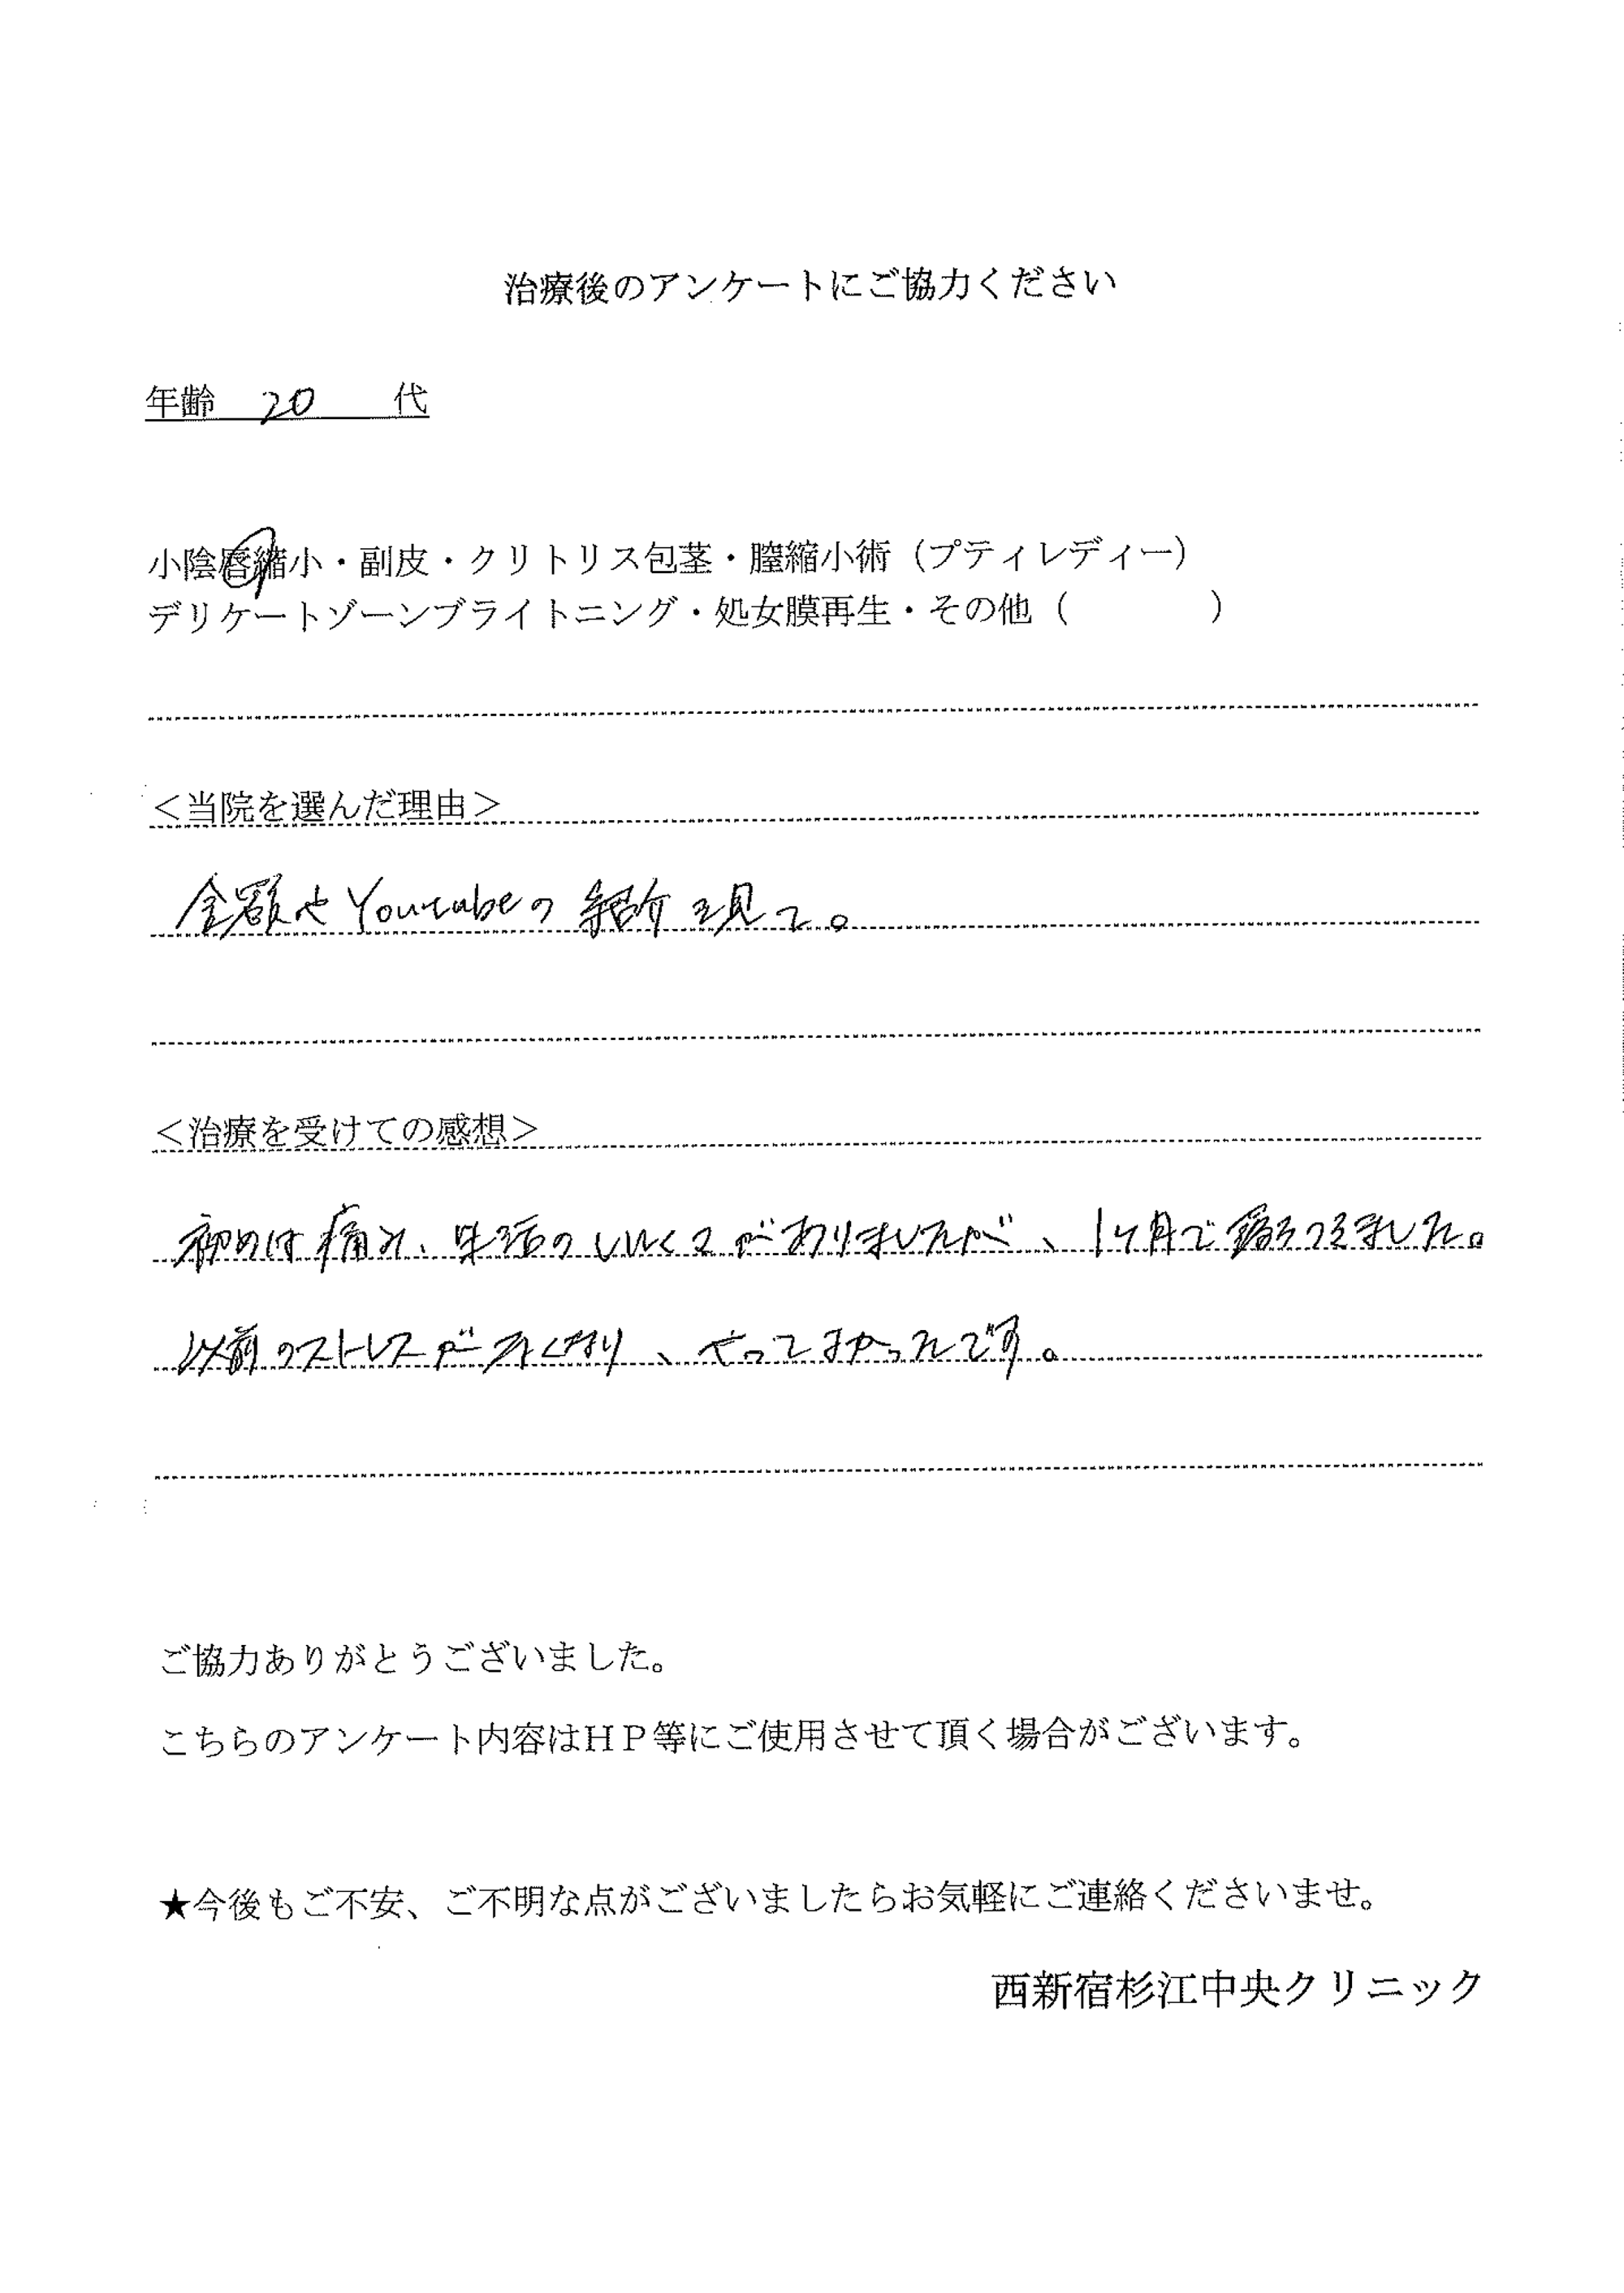 治療後のアンケートにご協力ください
年齢 20 代
小陰唇縮小・副皮・クリトリス包茎・膣縮小術（プティレディー）
デリケートゾーンブライトニング・処女膜再生・その他（ ）
＜当院を選んだ理由＞
金額やYoutubeの紹介を見て。
＜治療を受けての感想＞
初めは痛み、生活のしにくさがありましたが、1ヶ月で落ちつきました。
以前のストレスがなくなり、やってよかったです。
ご協力ありがとうございました。
こちらのアンケート内容はＨＰ等にご使用させて頂く場合がございます。
★今後もご不安、ご不明な点がございましたらお気軽にご連絡くださいませ。
西新宿杉江中央クリニック